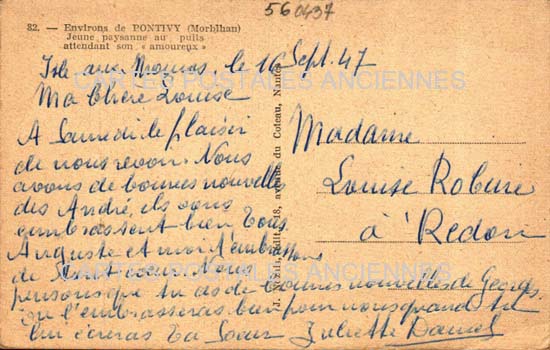 560437
82. — Environs de PONTIVY (Morbihan)
Jeune paysanne au puits
attendant son « amoureux »
Isle aux Moines, le 16 Sept. 47
Ma Chère Louise
A Samedi le plaisir
de nous revoir. Nous
avons de bonnes nouvelles
des André, ils vous
embrassent bien tous
Auguste et moi t'embrassons
de tout coeur. Nous
pensons que tu as de bonnes nouvelles de Georges
tu l'embrasseras bien pour nous quand tu
lui écriras Ta Soeur Juliette Daniel
Madame
Louise
à Redon
J. Nozais, édit., 18, avenue du Coteau, Nantes
CARTES POSTALES ANCIENNES
CARTES POSTALES ANCIENNES